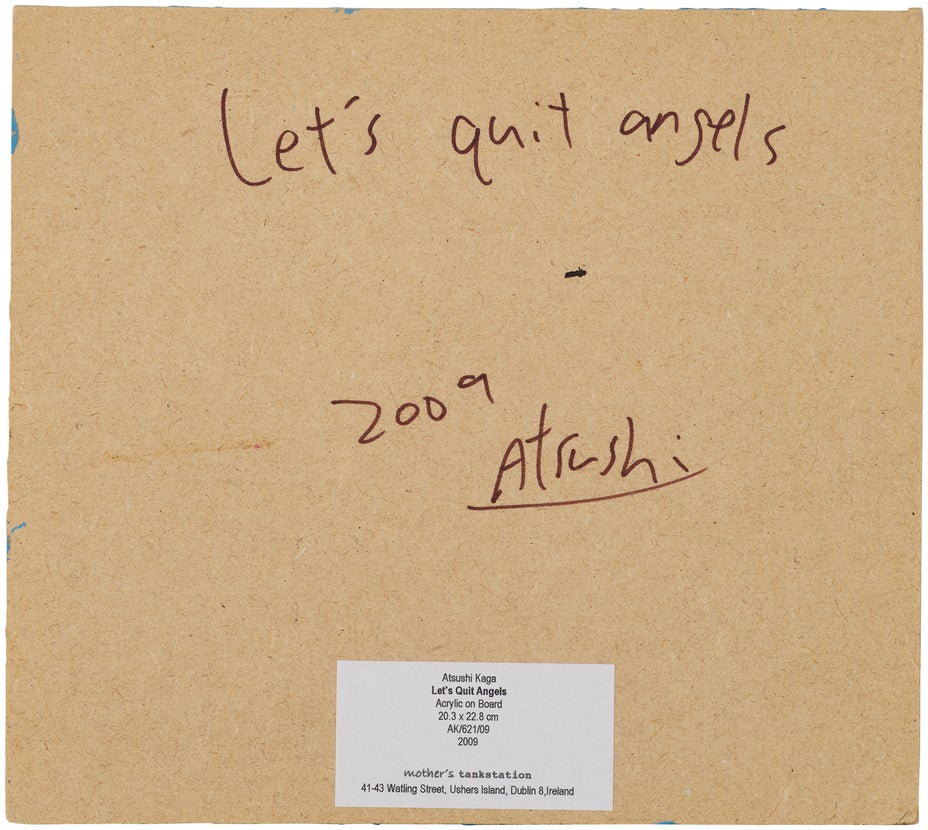 Let's quit angels
2009
Atsushi
Atsushi Kaga
Let's Quit Angels
Acrylic on Board
20.3 x 22.8 cm
AK/621/09
2009
mother's tankstation
41-43 Watling Street, Ushers Island, Dublin 8,Ireland